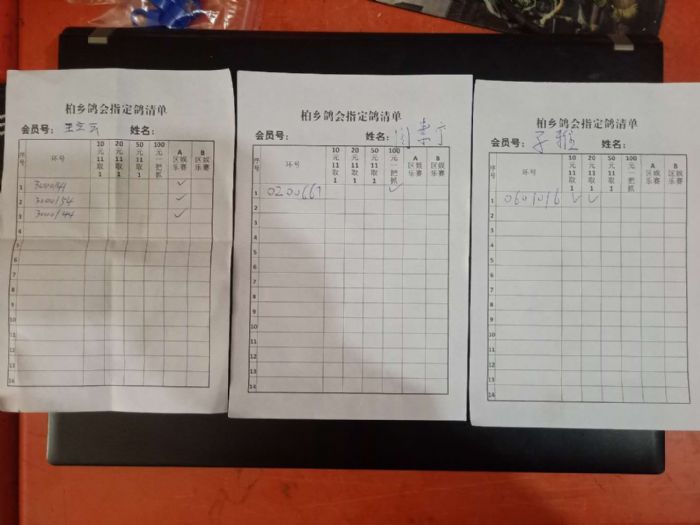 柏乡鸽会指定鸽清单
会员号: 王立云 姓名:
序号 环号 10元11取1 20元11取1 50元11取1 100元一把抓 A区娱乐赛 B区娱乐赛
1 ✓
2 3000154 ✓
3 3000144 ✓
4
5
6
7
8
9
10
11
12
13
14
柏乡鸽会指定鸽清单
会员号: 姓名:
序号 环号 10元11取1 20元11取1 50元11取1 100元一把抓 A区娱乐赛 B区娱乐赛
1 0200667 ✓
2
3
4
5
6
7
8
9
10
11
12
13
14
柏乡鸽会指定鸽清单
会员号: 姓名:
序号 环号 10元11取1 20元11取1 50元11取1 100元一把抓 A区娱乐赛 B区娱乐赛
1 0601016 ✓ ✓
2
3
4
5
6
7
8
9
10
11
12
13
14